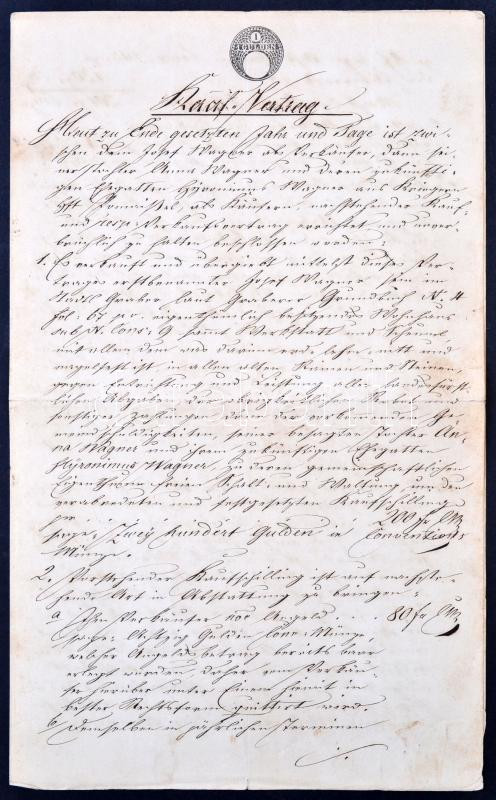 1
GULDEN
Kauf-Vertrag.
Heut zu Ende gesetzten Jahr und Tage ist zwi-
schen dem Josef Wagner als Verkäufer, dann sei-
ner Tochter Anna Wagner und deren zukünfti-
gen Ehegatten Hyronimus Wagner aus
als Käufern, nachstehender Kauf-
und Verkaufvertrag errichtet und unver-
brüchlich zu halten beschlossen worden:
1. Es verkauft und übergiebt mittelst dieses Ver-
trages erstbenannter Josef Wagner sein im
Städtl Graber laut Graberer Grundbuch N. 4
fol: 67 eigenthümlich besitzendes Wohnhaus
sub N. Cons: 9 sammt Werkstatt und Scheuer
mit allem dem was darinn erd-, leim-, nitt- und
nagelfest ist, in allen alten Rainen und Steinen,
gegen Entrichtung und Leistung aller landesfürst-
lichen Abgaben, der obrigkeitlichen und
sonstiger Zahlungen dann der vorkommenden Ge-
meindschuldigkeiten, seiner besagten Tochter An-
na Wagner und ihrem zukünftigen Ehegatten
Hyronimus Wagner, zu deren gemeinschaftlichen
Eigenthum freien Schalt- und Waltung um den
verabredeten und festgesetzten Kaufschilling
pr 200 fr CM
sage: Zwey hundert Gulden in Conventions
Münze.
2. Vorstehender Kaufschilling ist auf nachste-
hende Art in Abstattung zu bringen:
a Ihm Verkäufer das Angeld . . . 80 fr CM
sage: Achtzig Gulden Conv: Münze
welcher Angeldsbetrag bereits baar
erlegt worden, daher vom Verkäu-
fer hierüber unter Einem hiemit in
bester Rechtsform quittirt wird.
b, Demselben in jährlichen Terminen